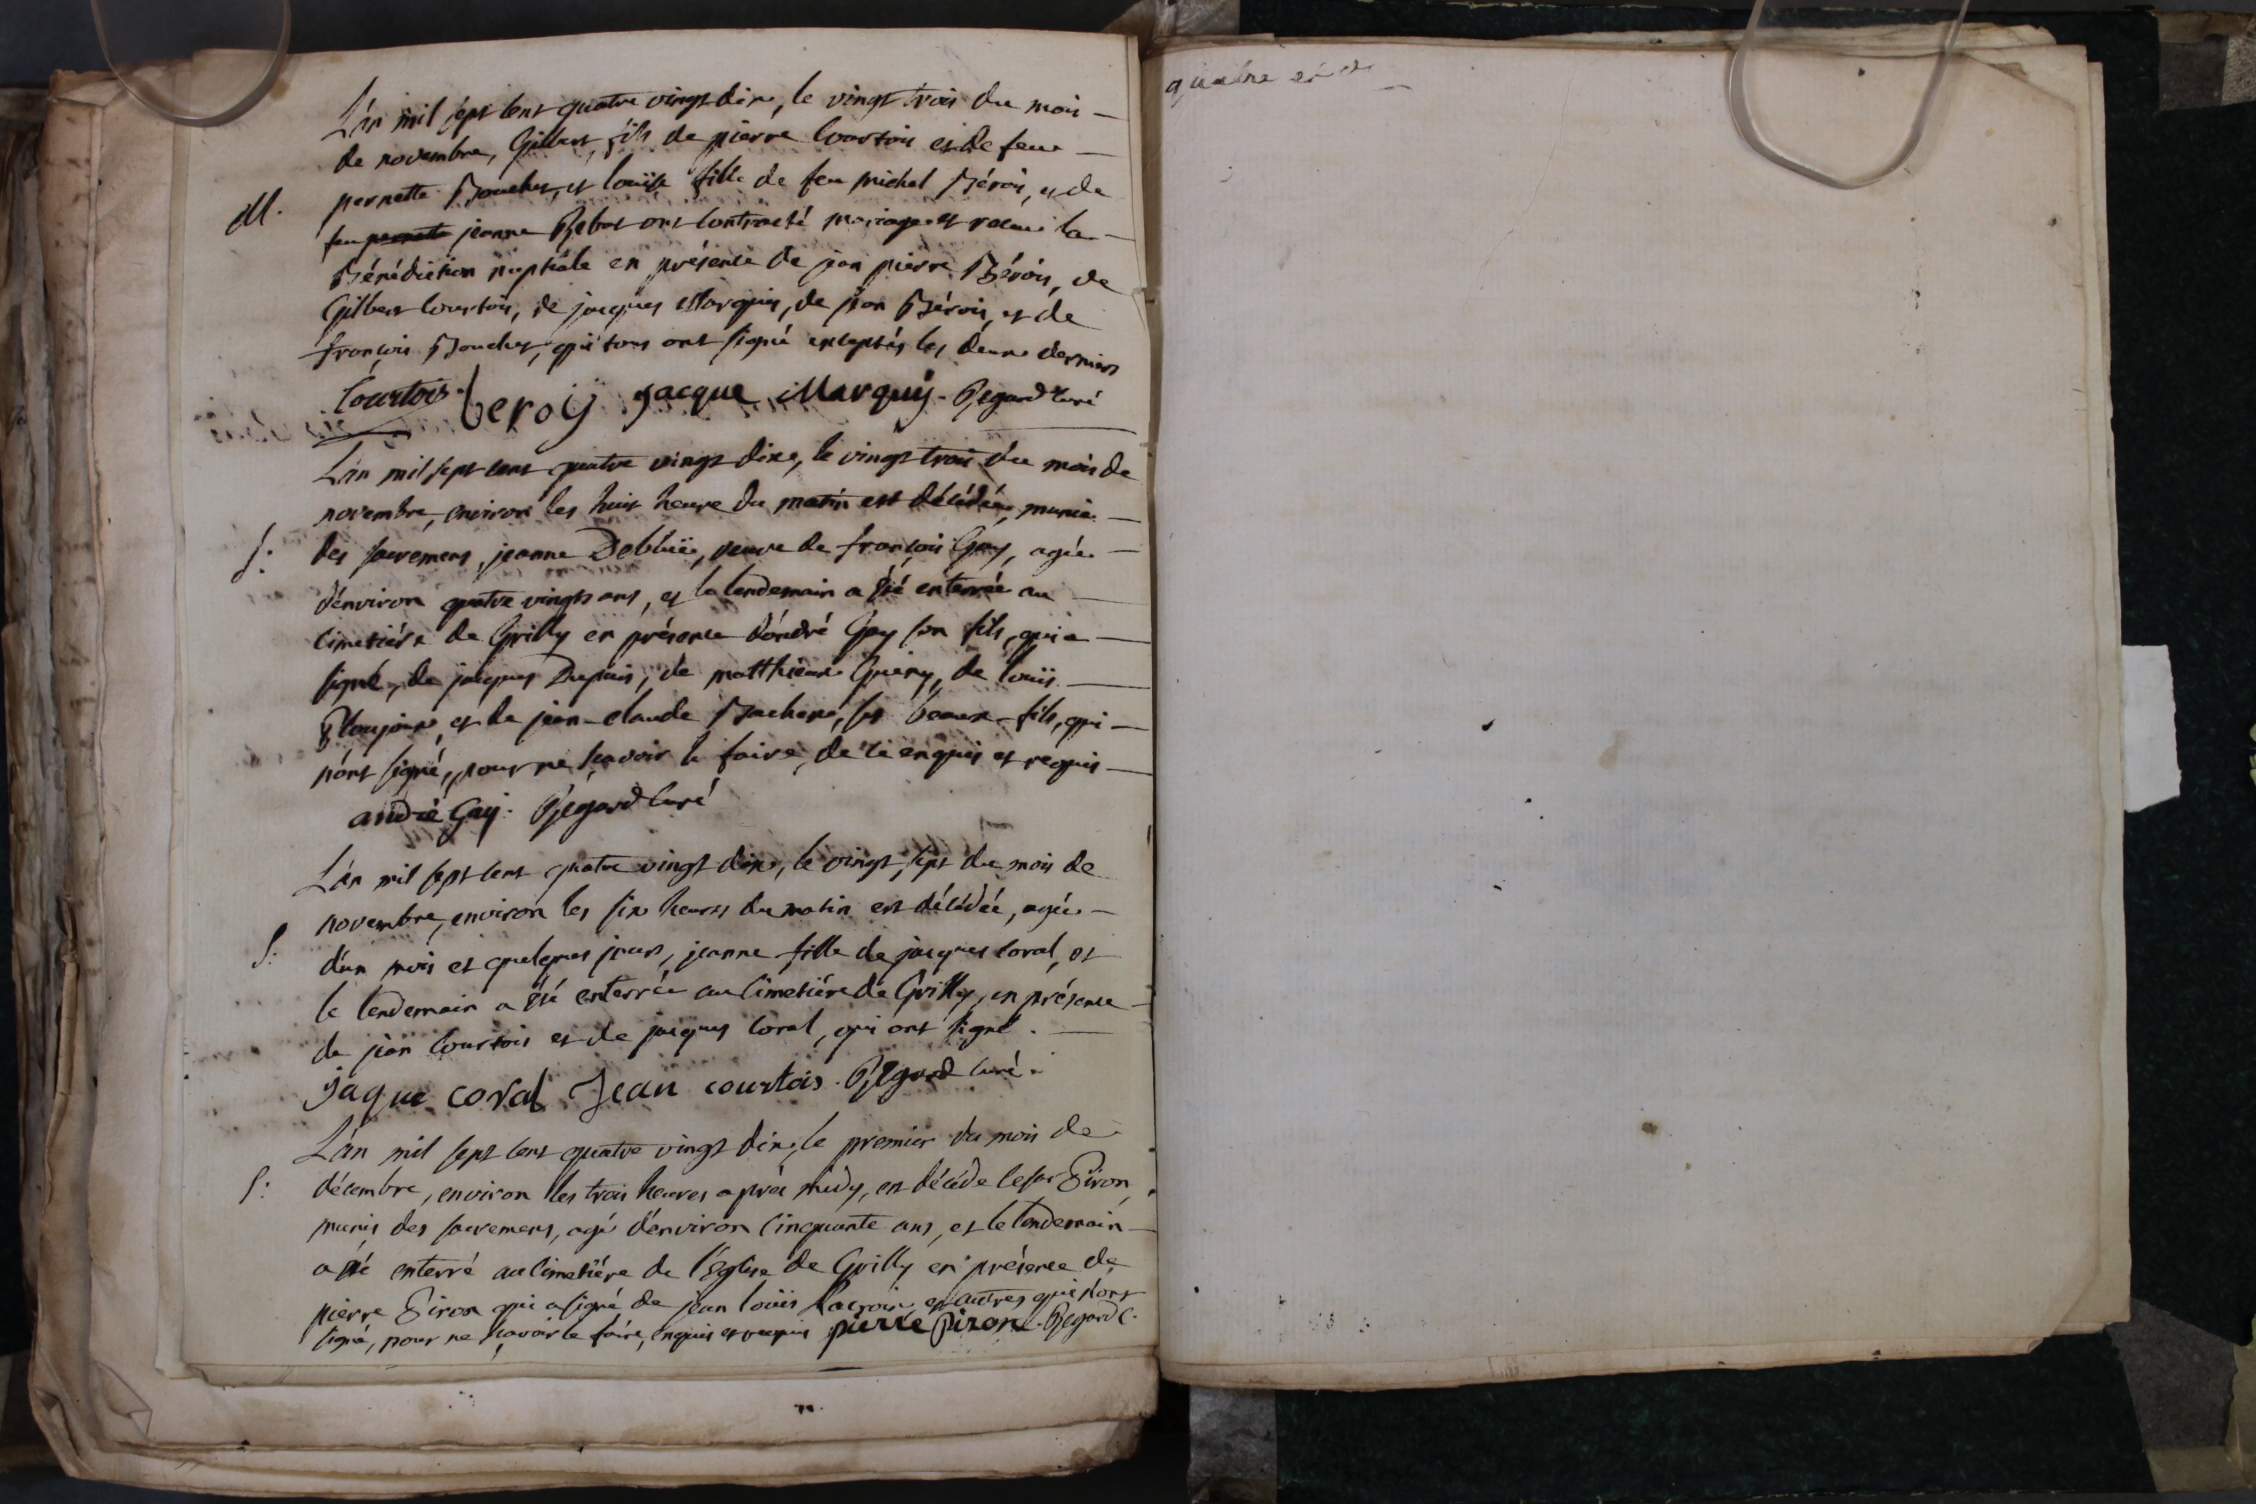 L'an mil sept cent quatre vingt dix, le vingt trois du mois
de novembre, Gilbert, fils de pierre Courtois et de feue
M. pernette Bouchet, et louïse fille de feu michel Bérois, et de
feu pernette jeanne Rebat ont contracté mariage et recu la
Bénédiction nuptiale en présence de jean pierre Bérois, de
Gilbert Courtois, de jacques Marquis, de jean Bérois, et de
françois Bouchet, qui tous ont signé exceptés les deux derniers
Courtois beroy Jacque Marquis. Regard Curé
L'an mil sept cent quatre vingt dix, le vingt trois du mois de
novembre, environ les huit heure du matin est décédée, munie
S: des sacremens, jeanne veuve de françois Gay, agée
d'environ quatre vingts ans, et le lendemain a été enterrée au
cimetière de Grilly en présence d'andré Gay son fils, qui a
signé, de jacques Dupuis, de matthieu Guery, de louïs
et de jean-claude Bachené, ses beaux-fils, qui
n'ont signé, pour ne sçavoir le faire, de ce enquis et requis
andré Gay. Regard Curé
L'an mil sept cent quatre vingt dix, le vingt sept du mois de
novembre, environ les six heures du matin est décédée, agée
S: d'un mois et quelques jours, jeanne fille de jacques Coral, et
le lendemain a été enterrée au cimetière de Grilly, en présence
de jean Courtois et de jacques Coral, qui ont signé.
jaque coral Jean courtois. Regard Curé.
L'an mil sept cent quatre vingt dix, le premier du mois de
S: décembre, environ les trois heures après midy, est décédé Piron,
munis des sacremens, agé d'environ cinquante ans, et le lendemain
a été enterré au cimetière de l'Église de Grilly en présence de
pierre Piron qui a signé, de jean louïs Lacroix, et autres qui n'ont
signé, pour ne sçavoir le faire, enquis et requis pierre Piron. Regard C.
quatre